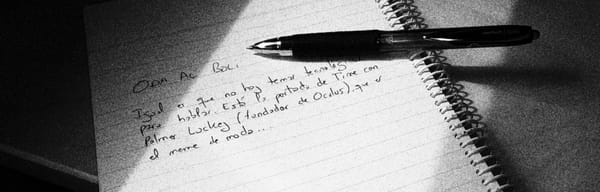 ODA AL BOLI
Igual a que no hay temas tecnológi
para hablar. Está la portada de Time con
Palmer Luckey (fundador de Oculus), que es
el meme de moda...